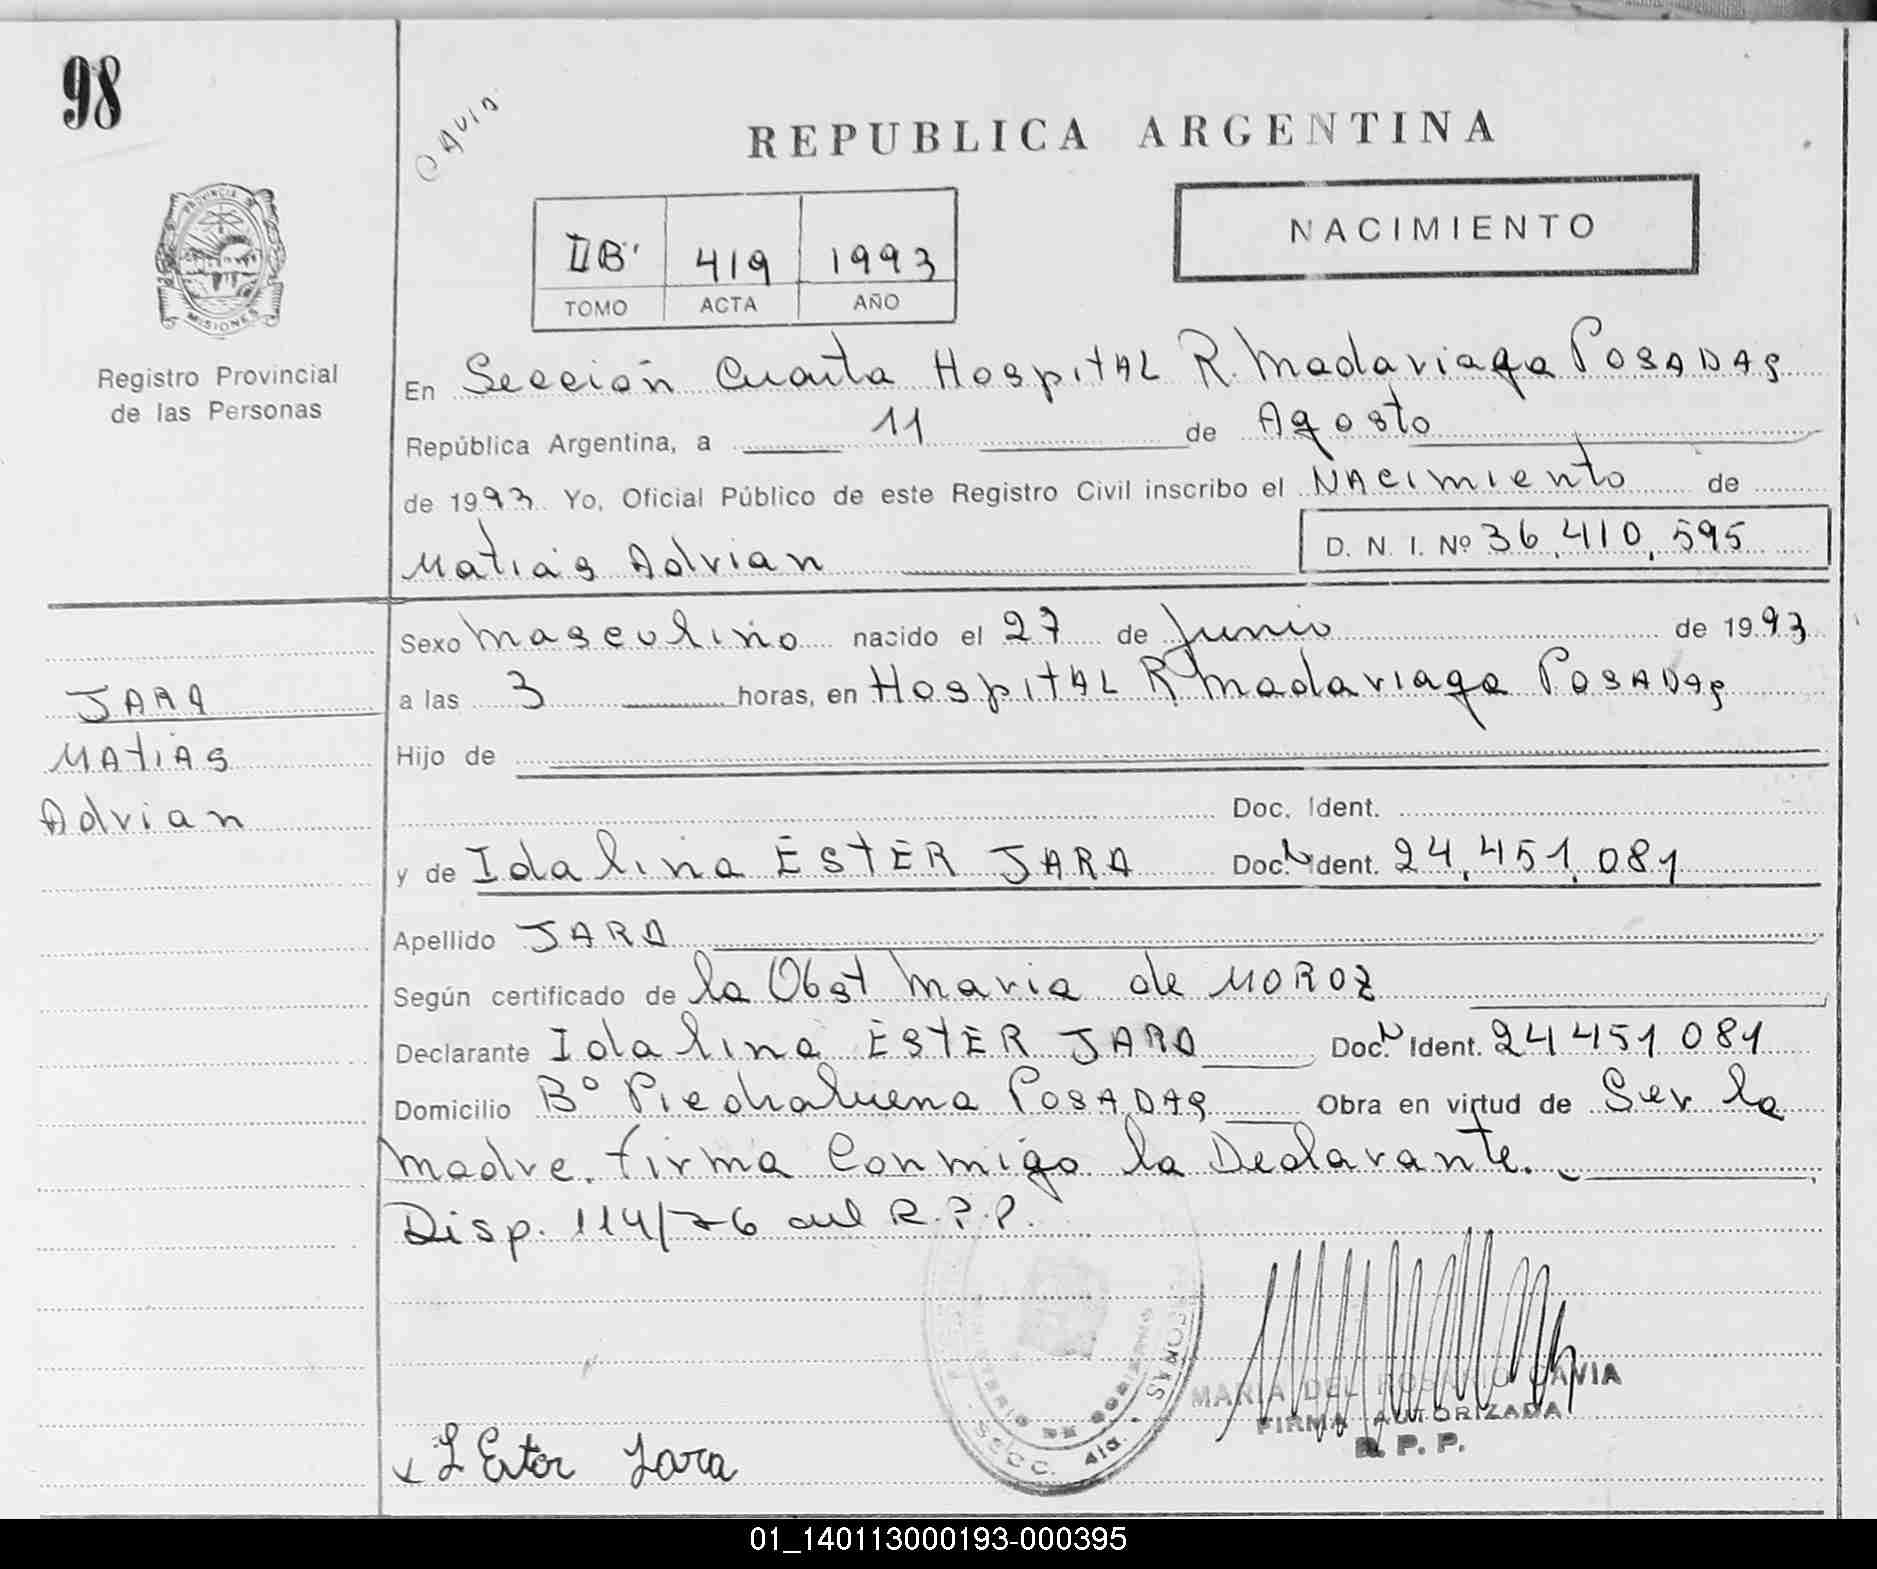 98
REPUBLICA ARGENTINA
NACIMIENTO
II B' 419 1993
TOMO ACTA AÑO
PROVINCIA DE
MISIONES
Registro Provincial
de las Personas
En Sección Cuarta Hospital R. Madariaga Posadas
República Argentina, a 11 de Agosto
de 1993 Yo, Oficial Público de este Registro Civil inscribo el Nacimiento de
Matias Adrian D. N. I. Nº 36,410,595
JARA
Matias
Adrian
Sexo Masculino nacido el 27 de Junio de 1993
a las 3 horas, en Hospital R Madariaga Posadas
Hijo de
Doc. Ident.
y de Idalina ESTER JARA Doc. N Ident. 24,451,081
Apellido JARA
Según certificado de la Obst Maria de MOROZ
Declarante Idalina ESTER JARA Doc. N Ident. 24 451 081
Domicilio Bº Piedrabuena Posadas Obra en virtud de Ser la
madre. firma Conmigo la Declarante.
Disp. 114/76 del R.P.P.
PERSONAS
MINISTERIO DE GOBIERNO
SECC. 4ta.
MARIA DEL ROSARIO CAVIA
FIRMA AUTORIZADA
R. P. P.
I Ester Jara
01_140113000193-000395